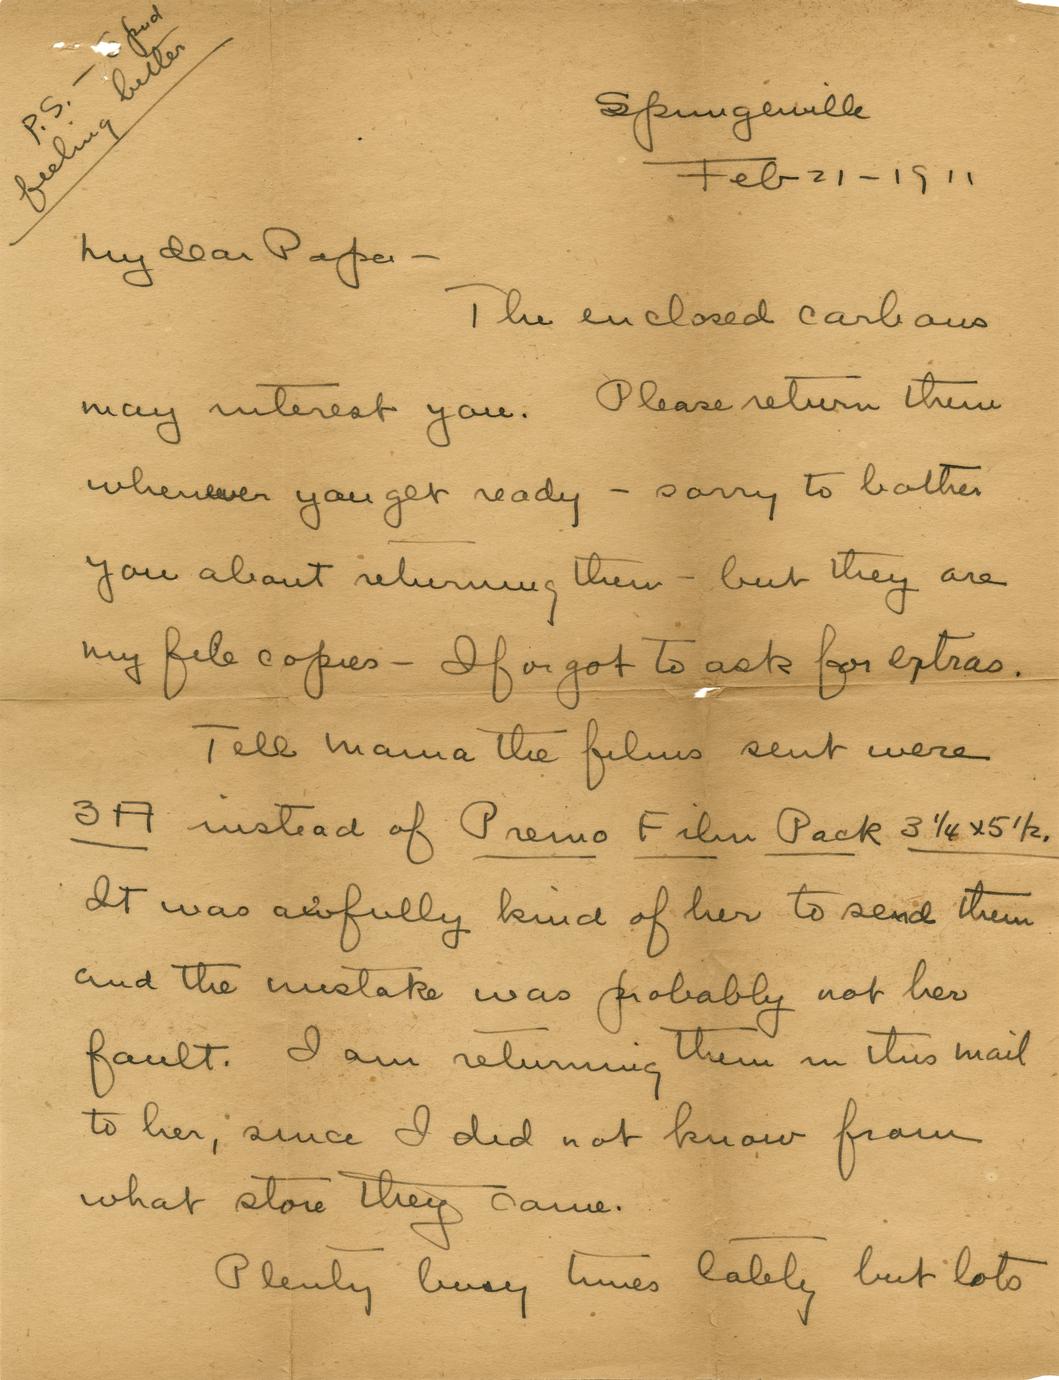 P.S. — Spud
feeling better
Springerville
Feb 21 - 1911
My dear Papa —
The enclosed carbons
may interest you. Please return them
whenever you get ready - sorry to bother
you about returning them - but they are
my file copies - I forgot to ask for extras.
Tell Mama the films sent were
3A instead of Premo Film Pack 3 1/4 x 5 1/2.
It was awfully kind of her to send them
and the mistake was probably not her
fault. I am returning them in this mail
to her, since I did not know from
what store they came.
Plenty busy times lately but lots